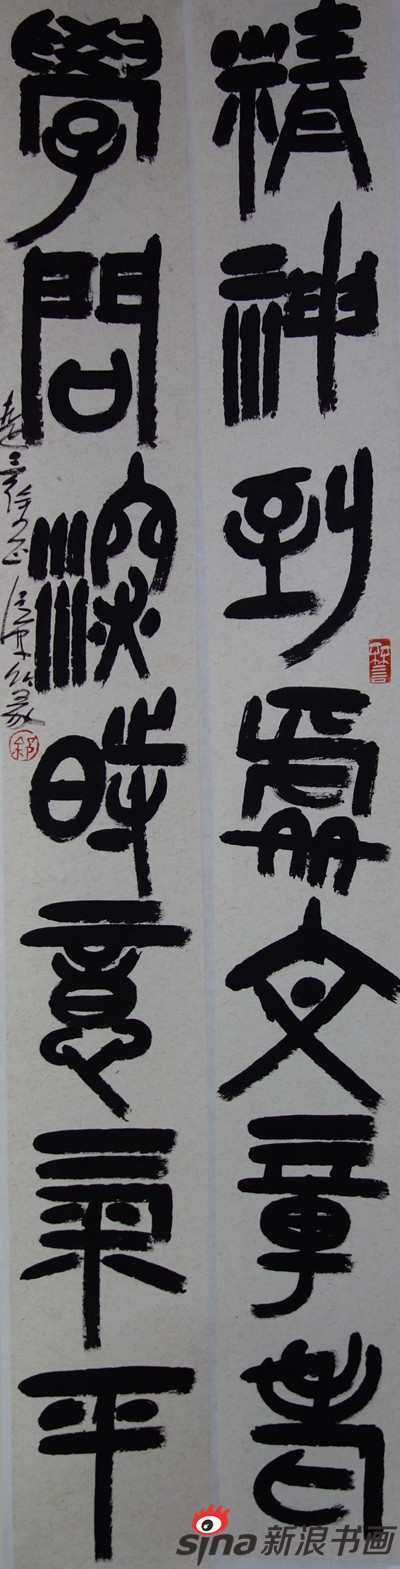 精神到處文章老
學問深時意氣平
sina 新浪书画